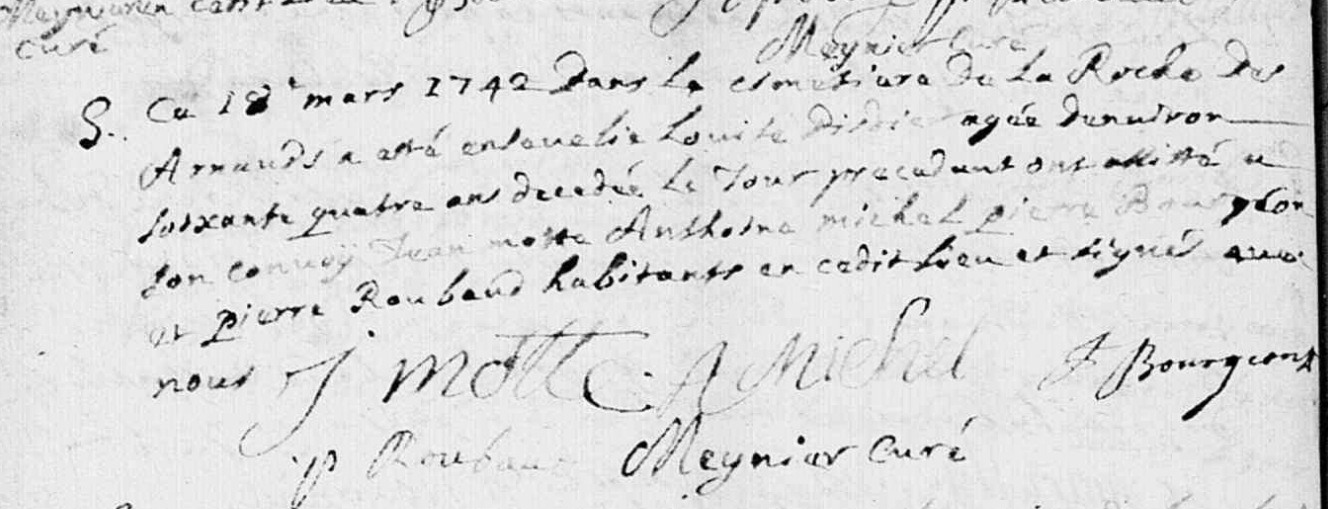 curé
Meynier curé
S. Ce 18e mars 1742 dans le cimetiere de La Roche des
Arnauds a etté ensevelie Louise Disdier agée denviron
soixante quatre ans decedée le Jour precedant ont assitté a
son convoy Jean motte Anthoine michel pierre Bourgeon
et pierre Roubaud habitants en cedit lieu et signés avec
nous J motte A Michel P Bourgeon
p Roubaud Meynier curé